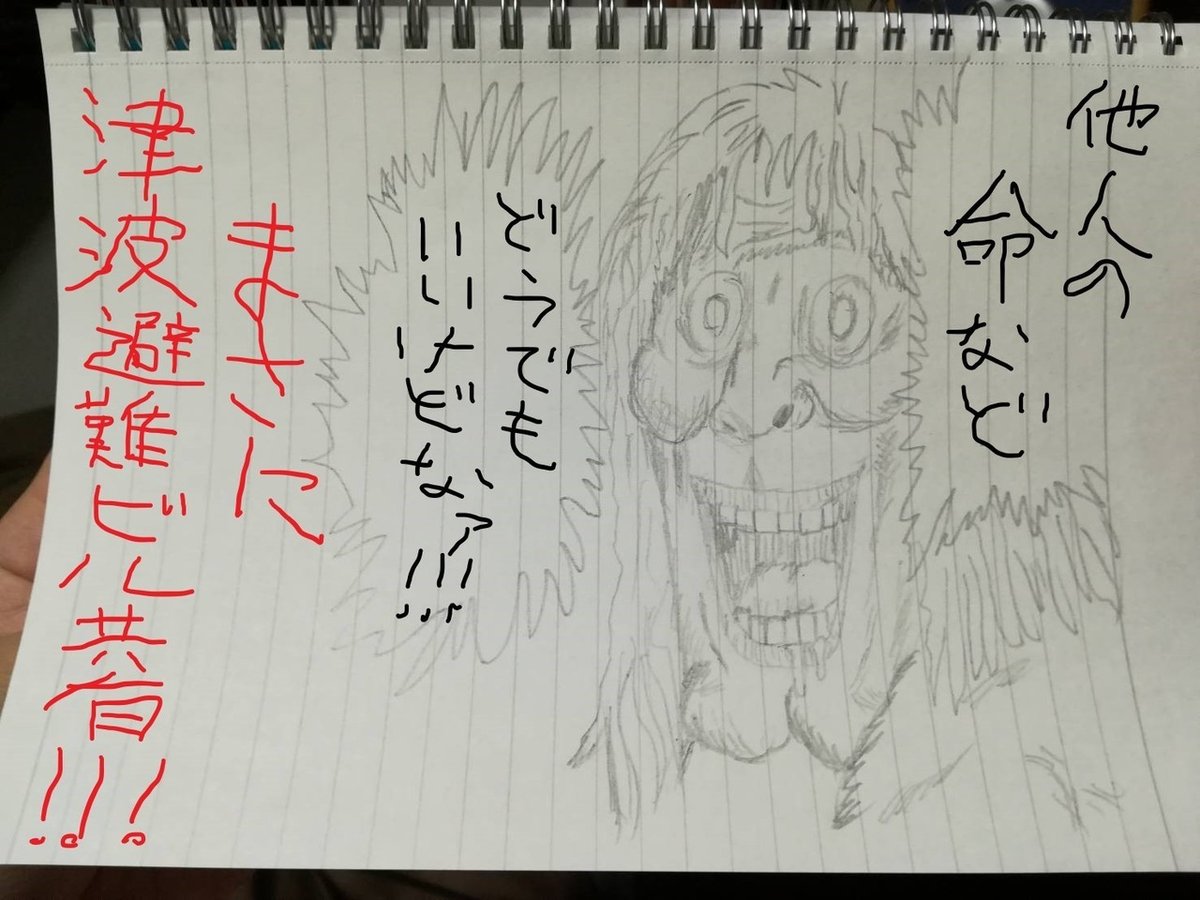 他人の
命など
どうでも
いいけどなァ!!!
まさに
津波避難ビル共有!!!